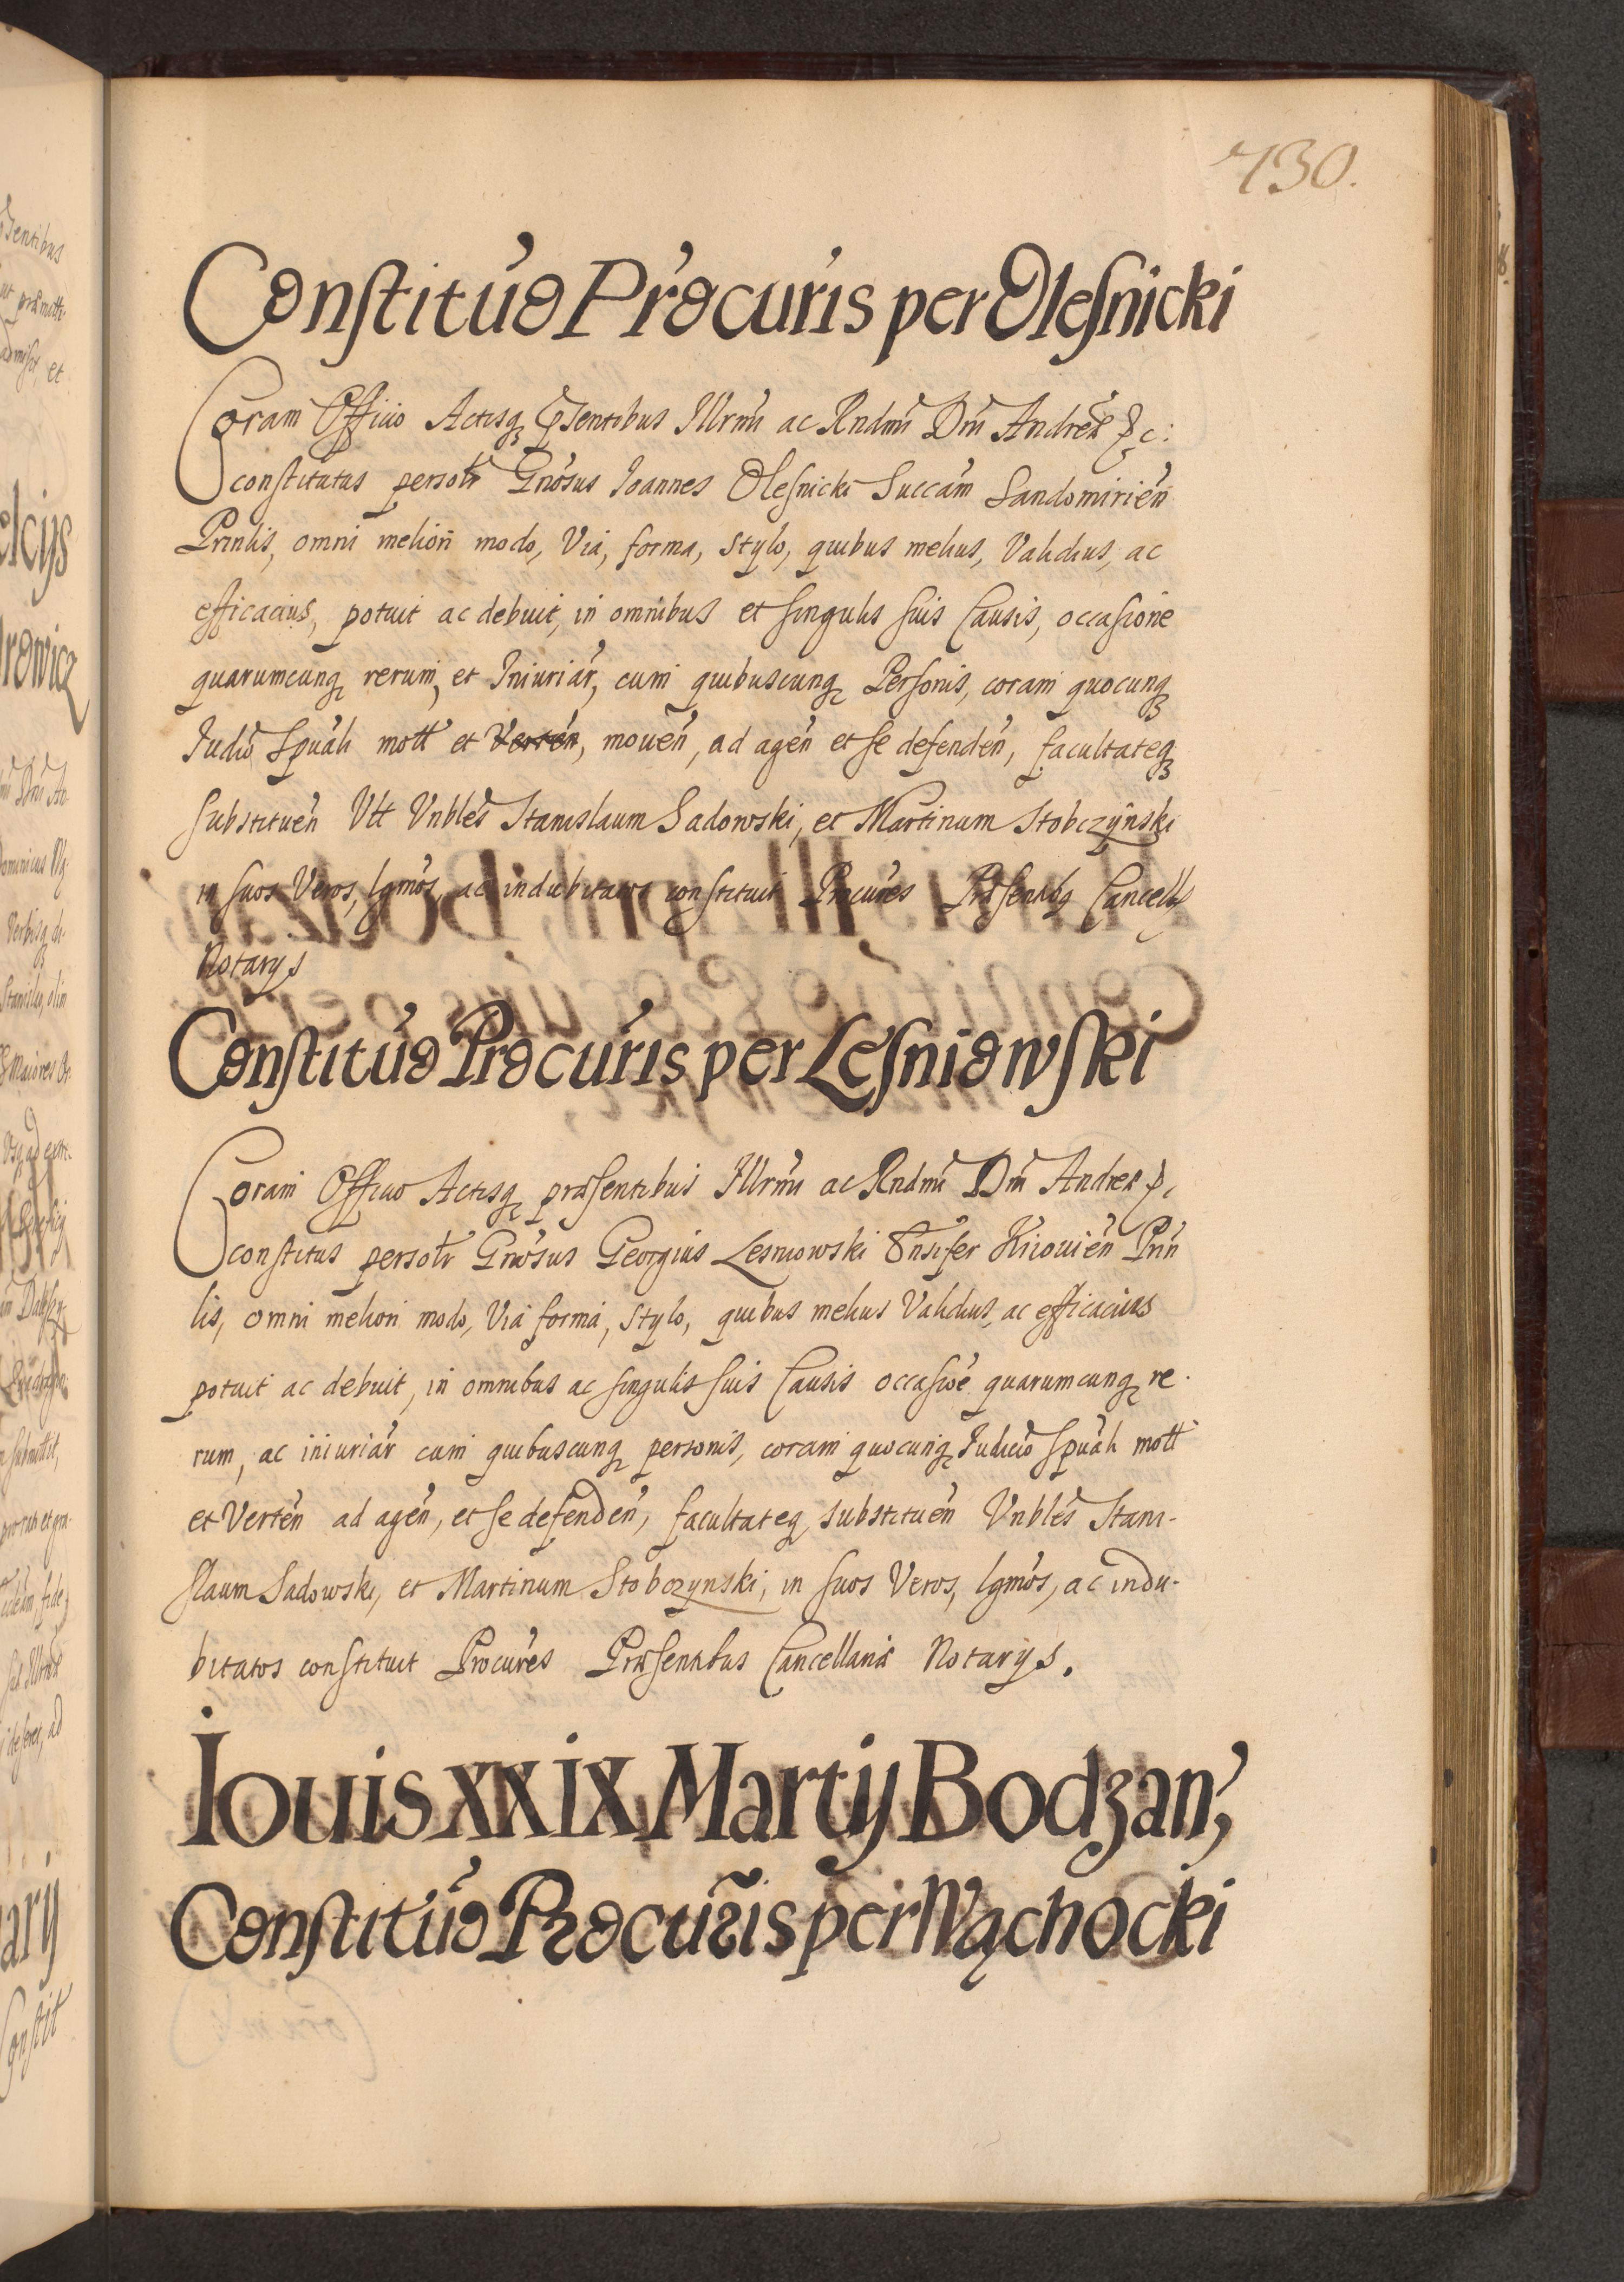 730.
Constitúo Prócúris per Olesnicki
Coram Officio Actisq; Psentibus Illrmi ac Rndmi Dni Andreæ &c:
constitutus personlr Gnosus Ioannes Olesnicki Succam̃ Sandomirień
Prinlis, omni meliori modo, Via, forma, stylo, quibus melius, Validius, ac
efficacius, potuit ac debuit, in omnibus et singulis suis Causis, occasione
quarumcunq; rerum, et Iniuriar̃, cum quibuscunq; Personis, coram quocunq;
Iudió Spuali mott et Vertén, mouén, ad agén et se defendén, facultateq;
substituén Vtt Vnblés Stanislaum Sadowski, et Martinum Stobczynski
in suos Veros, lgmós, ac indubitatos constituit Procurés Præsentibq Cancell
Notarys
Constitúo Procúris per Lesniowski
Coram Officio Actisq; præsentibus Illrmi ac Rndmi Dni Andreæ &c
constitus personlr Gnosus Georgius Lesniowski Ensifer Kiiouién Prin
lis, omni meliori modo, Via forma, stylo, quibus melius Validius, ac efficacius
potuit ac debuit, in omnibus ac singulis suis Causis occasióe quarumcunq; re-
rum, ac iniuriár cum quibuscunq; personis, coram quocunq; Iudicio Spuali mott
et Vertén ad agén, et se defendén, facultateq; substituén Vnblés Stani-
slaum Sadowski, et Martinum Stobczynski, in suos Veros, lgmós, ac indu-
bitatos constituit Procurés Præsentibus Cancellariæ Notarys.
Iouis XXIX Martij Bodzan;
Constitúo Procúris per Wąchocki